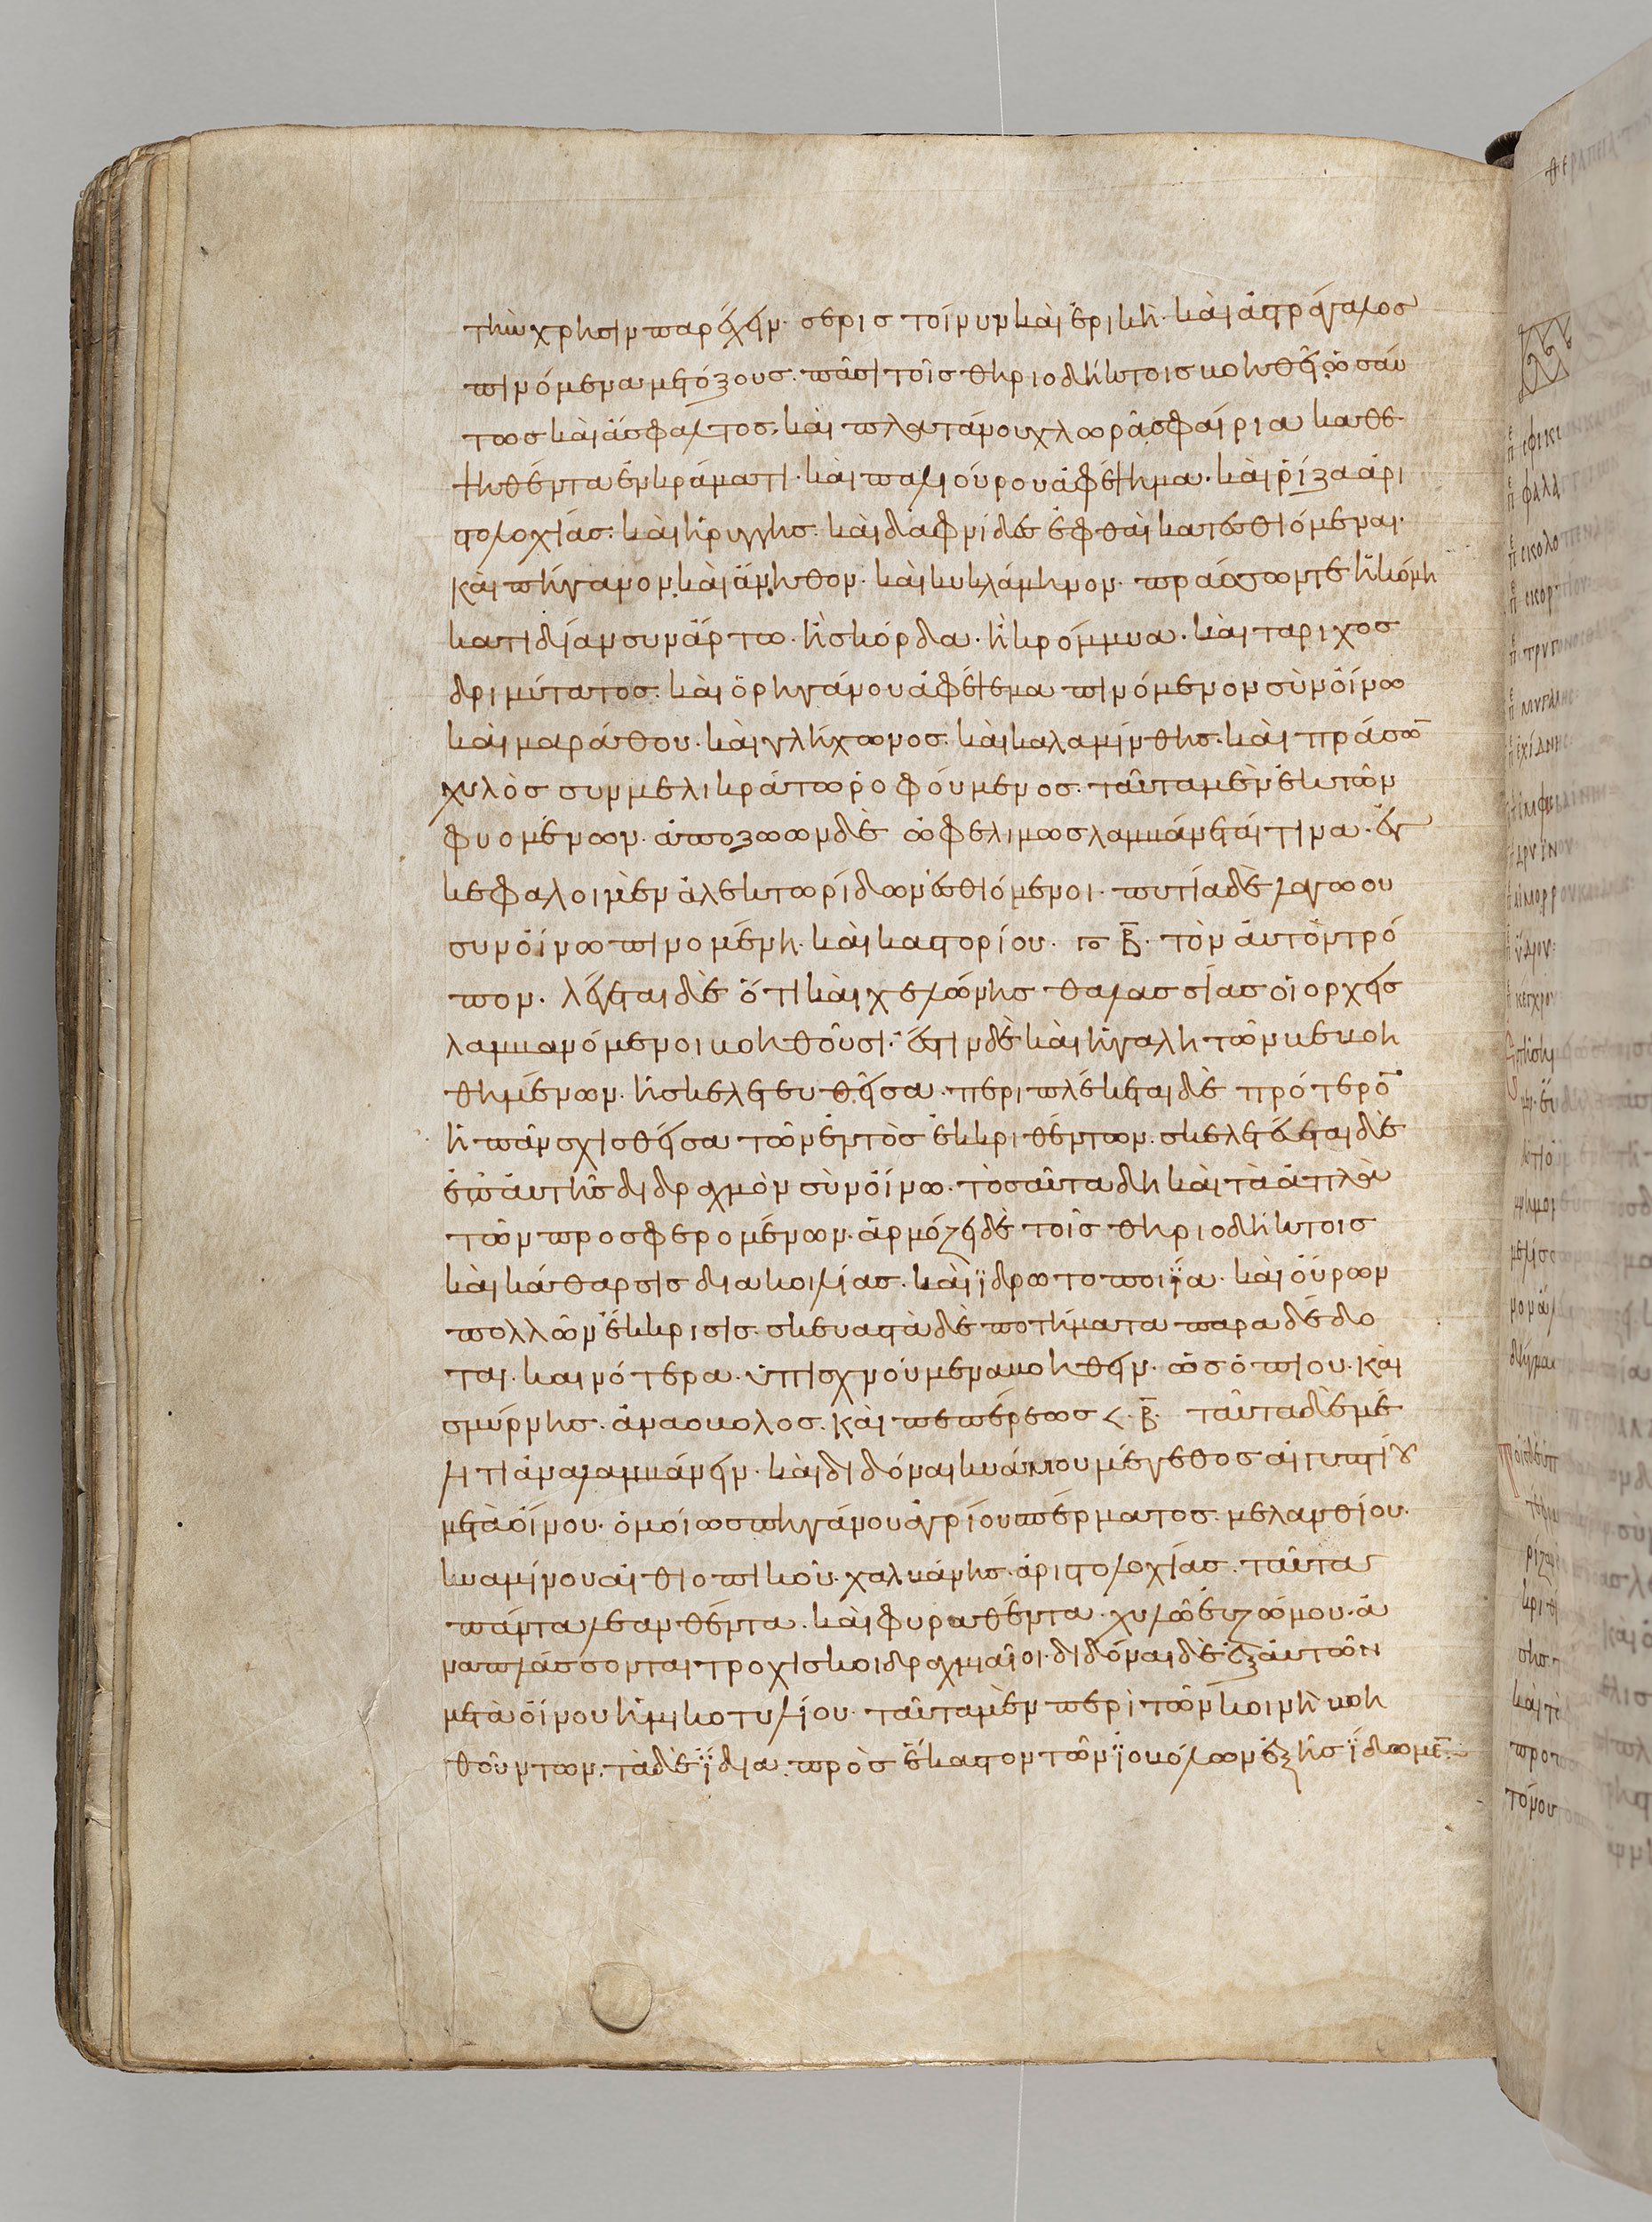 τὴν χρῆσιν παρέχειν· σερισ τοίνυν καὶ ἐρίκη· καὶ ἀστράγαλοσ
πινόμενα μετ ὄξουσ· πᾶσι τοῖσ θηριοδήκτοισ βοηθεῖ· ὡσαύ
τωσ καὶ ἄσφαλτοσ· καὶ πλατάνου χλωρὰ σφαίρια καθε
ψηθέντα ἐν κράματι· καὶ παλιούρου ἀφέψημα· καὶ ῥίζα ἀρι
στολοχίασ· καὶ ἠρύγγησ· καὶ δαφνίδεσ ἐφθαὶ κατεσθιόμεναι·
καὶ πήγανον καὶ ἄνηθον· καὶ κυκλάμηνον· πράσσων τε ἡ κόμη
κατ ιδίαν συν ἄρτω· ἢ σκόρδα· ἢ κρόμμυα· καὶ ταριχοσ
δριμύτατοσ· καὶ ὀρηγάνου ἀφέψεμα πινόμενον σὺν οἴνω
καὶ μαράθου· καὶ γλήχωνοσ· καὶ καλαμίνθησ· καὶ πράσω̄
χυλὸσ συν μελικράτω ῥοφούμενοσ· ταῦτα μὲν ἐκ τῶν
φυομένων· ἀπο ζώων δὲ ὠφελιμωσ λαμβάνεταί τινα· ἐγ
κεφαλοι μὲν ἀλεκτωρίδων ἐσθιόμενοι· πυτία δὲ λαγωου
συν οἴνω πινομένη· καὶ καστορίου· 𐅵 β̄· τὸν ἀυτὸν τρό
πον· λέγεται δὲ ὅτι καὶ χελώνησ θαλασσίασ οἱ ορχεισ
λαμβανόμενοι βοηθοῦσι· ἔστιν δὲ καὶ ἡ γαλη τῶν βεβοη
θημένων· ἡ σκελετευθεῖσα· περιπλέκεται δὲ πρότερο̄
ἢ πᾶν σχισθεῖσα τῶν ἐντὸσ ἐκκριθέντων· σκελετέυεται δὲ
ἐπ ἀυτῆσ διδραχμὸν σὺν οἴνω· τοσαῦτα δὴ καὶ τὰ ἁπλᾶ
τῶν προσφερομένων· ἁρμόζει δὲ τοῖσ θηριοδήκτοισ
καὶ κάθαρσισ δια κοιλίασ· καὶ ϊδρωτοποιΐα· καὶ ὀύρων
πολλῶν ἔκκρισισ· σκευαστὰ δὲ ποτήματα παραδέδο
ται· καινότερα· ὑπισχνούμενα βοηθειν· ὡσ ὀπιου· καὶ
σμύρνησ· ἀνα οκολοσ· καὶ πεπέρεωσ 𐅻· β̄· ταῦτα δὲ μέ
λιτι ἀναλαμβάνειν· καὶ διδόναι κυάμου μέγεθοσ αἰγυπτίου
μετὰ οἴνου· ὁμοίωσ πηγάνου ἀγρίου σπέρματοσ· μελανθίου·
κυαμίνου αἰθιοπικοῦ· χαλβάνησ· ἀριστολοχίασ· ταῦτα
πάντα λεανθέντα· καὶ φυραθέντα· χυλῶ ἐυζώμου· ἀ
ναπλάσσονται τροχίσκοι δραχμιαῖοι· διδόναι δὲ ἐξ ἀυτῶν
μετὰ οἴνου ἡμικοτυλίου· ταῦτα μὲν περὶ τῶν κοινῆ βοη
θούντων· τὰ δὲ ΐδια πρὸσ ἕκαστον τῶν ϊοβόλων ἑξῆσ ΐδωμε̄·